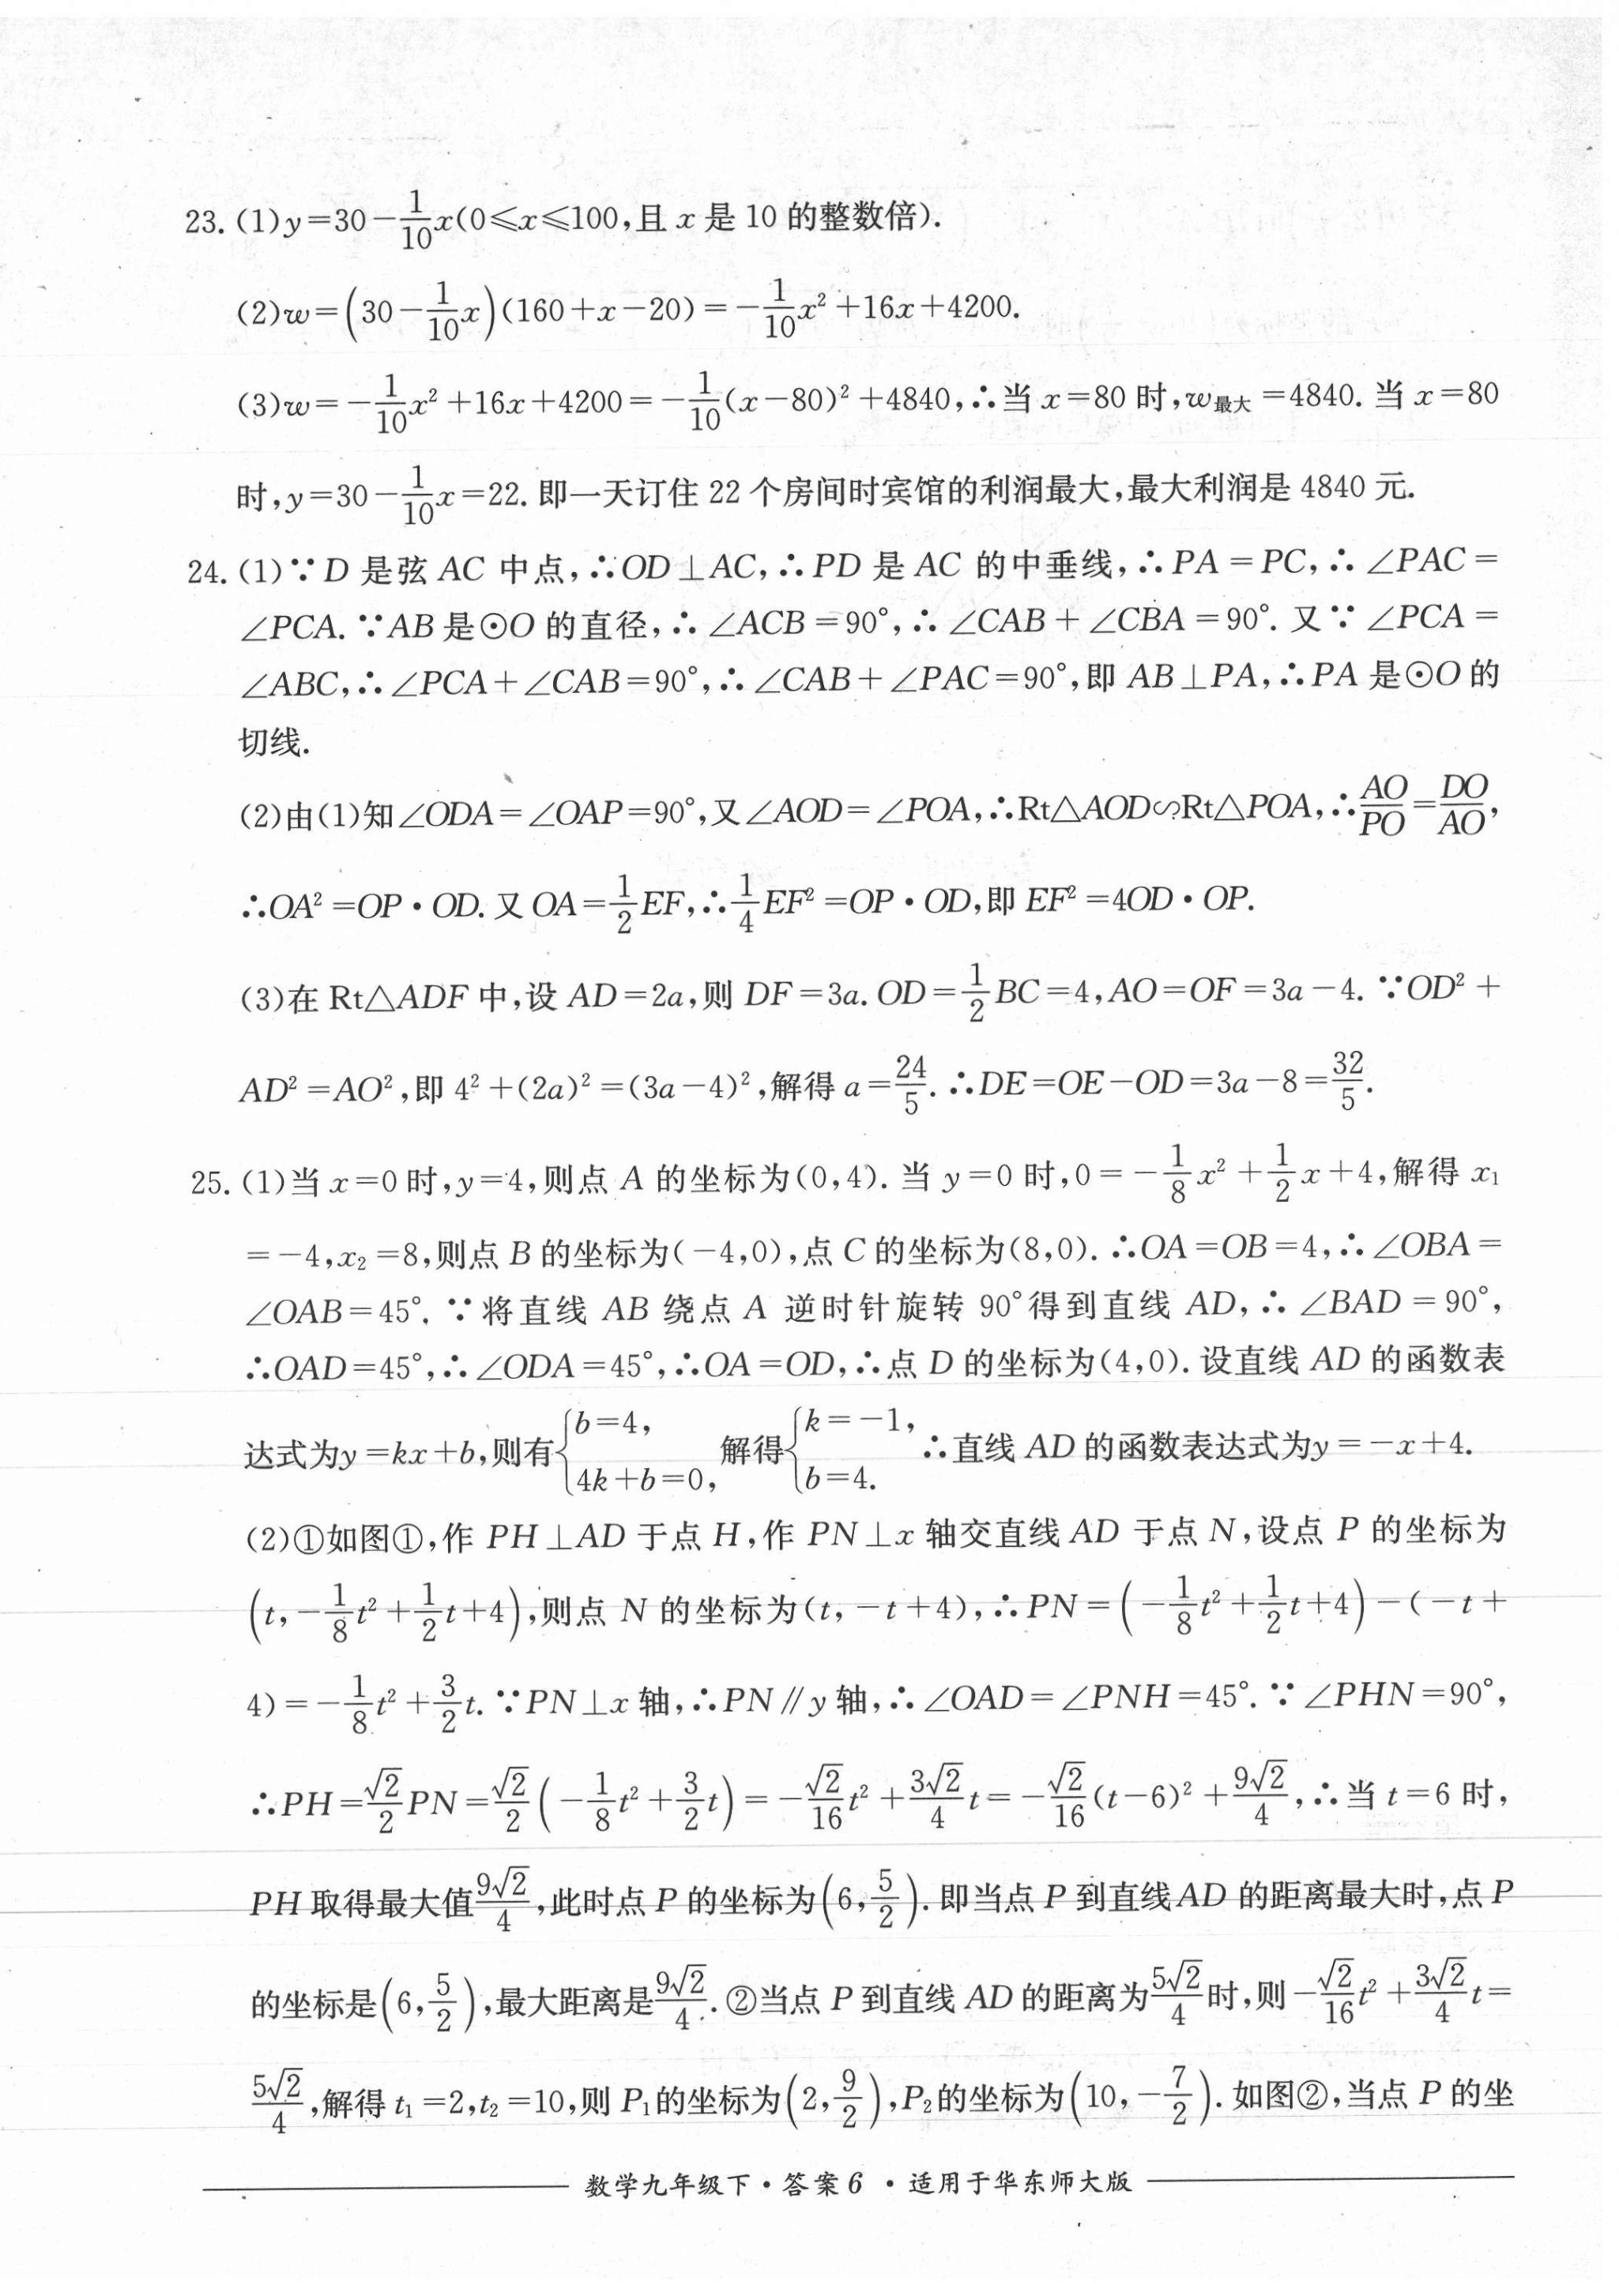 23. (1)y=30-1/10x(0≤x≤100,且 x 是 10 的整数倍).
(2)w=(30-1/10x)(160+x-20)=-1/10x²+16x+4200.
(3)w=-1/10x²+16x+4200=-1/10(x-80)²+4840,∴当 x=80 时,w最大=4840. 当 x=80
时,y=30-1/10x=22. 即一天订住 22 个房间时宾馆的利润最大,最大利润是 4840 元.
24. (1)∵D 是弦 AC 中点,∴OD⊥AC,∴PD 是 AC 的中垂线,∴PA=PC,∴∠PAC=
∠PCA. ∵AB 是⊙O 的直径,∴∠ACB=90°,∴∠CAB+∠CBA=90°. 又∵∠PCA=
∠ABC,∴∠PCA+∠CAB=90°,∴∠CAB+∠PAC=90°,即 AB⊥PA,∴PA 是⊙O 的
切线.
(2)由(1)知∠ODA=∠OAP=90°,又∠AOD=∠POA,∴Rt△AOD∽Rt△POA,∴AO/PO=DO/AO,
∴OA²=OP·OD. 又 OA=1/2EF,∴1/4EF²=OP·OD,即 EF²=4OD·OP.
(3)在 Rt△ADF 中,设 AD=2a,则 DF=3a. OD=1/2BC=4,AO=OF=3a-4. ∵OD²+
AD²=AO²,即 4²+(2a)²=(3a-4)²,解得 a=24/5. ∴DE=OE-OD=3a-8=32/5.
25. (1)当 x=0 时,y=4,则点 A 的坐标为(0,4). 当 y=0 时,0=-1/8x²+1/2x+4,解得 x₁
=-4,x₂=8,则点 B 的坐标为(-4,0),点 C 的坐标为(8,0). ∴OA=OB=4,∴∠OBA=
∠OAB=45°. ∵将直线 AB 绕点 A 逆时针旋转 90°得到直线 AD,∴∠BAD=90°,
∴OAD=45°,∴∠ODA=45°,∴OA=OD,∴点 D 的坐标为(4,0). 设直线 AD 的函数表
达式为y=kx+b,则有{b=4, 4k+b=0, 解得{k=-1, b=4. ∴直线 AD 的函数表达式为y=-x+4.
(2)①如图①,作 PH⊥AD 于点 H,作 PN⊥x 轴交直线 AD 于点 N,设点 P 的坐标为
(t,-1/8t²+1/2t+4),则点 N 的坐标为(t,-t+4),∴PN=(-1/8t²+1/2t+4)-(-t+
4)=-1/8t²+3/2t. ∵PN⊥x 轴,∴PN∥y 轴,∴∠OAD=∠PNH=45°. ∵∠PHN=90°,
∴PH=√2/2PN=√2/2(-1/8t²+3/2t)=-√2/16t²+3√2/4t=-√2/16(t-6)²+9√2/4,∴当 t=6 时,
PH 取得最大值9√2/4,此时点 P 的坐标为(6,5/2). 即当点 P 到直线AD 的距离最大时,点 P
的坐标是(6,5/2),最大距离是9√2/4. ②当点 P 到直线 AD 的距离为5√2/4时,则-√2/16t²+3√2/4t=
5√2/4,解得 t₁=2,t₂=10,则 P₁的坐标为(2,9/2),P₂的坐标为(10,-7/2). 如图②,当点 P 的坐
数学九年级下·答案6 ·适用于华东师大版